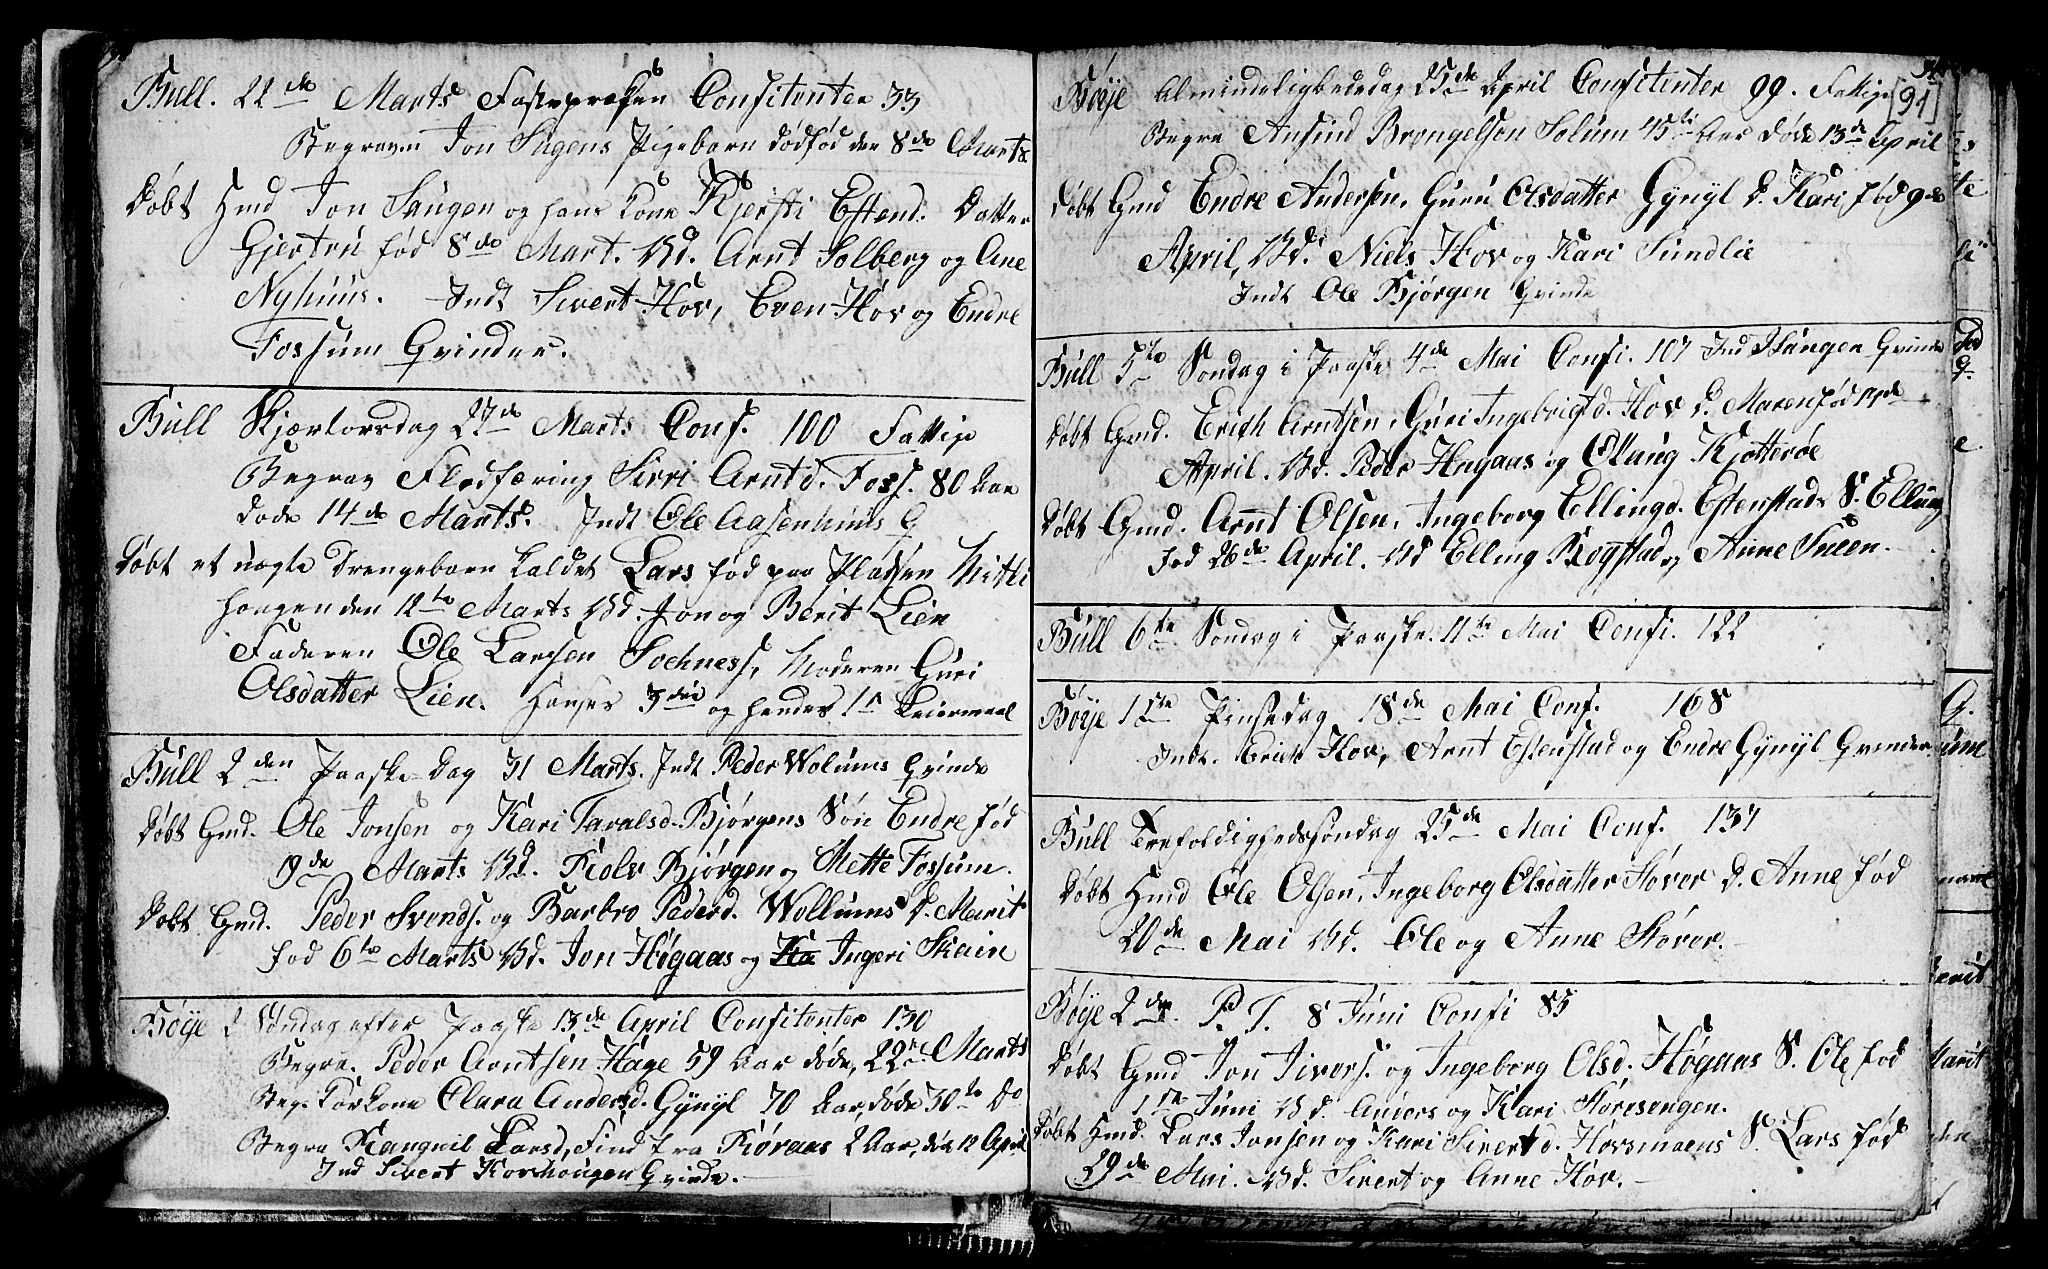 Bull. 22de Marts Fasteprækn Confitenter 33
Begraven Jon Sugens Pigebarn dødfød den 8de Marts
Døbt Hmd Jon Saugen og hans Kone Kjersti Estend. Datter
Gjertru fød 8de Mart. Bd. Arnt Solberg og Ane
Nyhuus. Indt Sivert Hov, Even Hov og Endre
Fossum Qvinder.
Bull Skjærtorsdag 27de Marts Conf. 100 Fattige
Begrav Flodfæring Sirri Arntd. Foss. 80 Aar
døde 14de Marts. Indt Ole Aasenhuus Q
Døbt et uægte Drengebarn kaldet Lars fød paa Pladsen
hougen den 12te Marts Bd. Jon og Berit Lien
Faderen Ole Larssen Soehness, Moderen Guri
Olsdatter Lien. Hanses 3die og hendes 1te Leiermaal
Bull 2den Paaske-Dag 31 Marts. Indt Peder Wolums Qvinde
Døbt Gmd. Ole Jonsen og Kari Taralsd. Bjørgens Søn Endre fød
19de Marts Bd. Kolv Bjørgen og Mette Fossum.
Døbt Gmd. Peder Svends. og Barbro Pederd. Wollums D. Marit
fød 6te Marts Bd. Jon Høgaas og Ka Ingeri Skain
Bøye 2 Søndag efter Paaske 13de April Confitenter 130
Begra. Peder Arntsen Hage 59 Aar døde, 22de Marts
Beg. Karkone Clara Andersd. Gynyl 70 Aar, døde 30te Do
Begra Rangnil Larsd, Find fra Røraas 2 Aar, den 12 April
Ind Sivert Korshougen Qvinde.
Bøye Almindeligbededag 25de April Confitenter 99. Fattige
[91]
Begra Amund Brongelsøn Solum 45ti Aar døde 13de April
Døbt Gmd Endre Andersen, Guru Olsdatter Gynyl D. Kari fød 9de
April, Bd. Niels Hov og Kari Sundlie
Indt Ole Bjørgen Qvinde
Bull 5te Søndag i Paaske 4de Mai Confi. 107 Ind Haugen Qvinde
Døbt Gmd. Erich Arntsen, Guri Ingebrigtd. Hov D. Maren fød 11de
April. Bd. Peder Hagaas og Olaug Kjøtterøe
Døbt Gmd. Arnt Olsen, Ingeborg Ellingd. Estenstads S. Elling
Fød 26de April. Bd Elling Rogstad og Anne Sneen.
Bull 6te Søndag i Paaske. 11te Mai Confi. 122
Bøye 1ste Pinsedag 18de Mai Conf. 168
Indt. Erich Hov, Arnt Estenstad og Endre Gynyl Qvinder
Bull Trefoldighedssøndag 25de Mai Conf. 137
Døbt Hmd Ole Olsen, Ingeborg Olsdatter Hovor D. Anne fød
20de Mai Bd. Ole og Anne Hovor.
Bøye 2den P. T. 8 Juni Confi 85
Døbt Gmd Jon Ivers. og Ingeborg Olsd. Høgaas S. Ole fød
1ste Juni Bd. Anders og Kari Høresengen.
Døbt Hmd. Lars Jonsen og Kari Sivertd. Hovsmoens S. Lars fød
29de Mai. Bd. Sivert og Anne Hov.